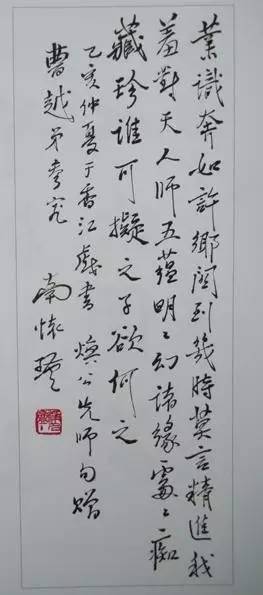 業識奔如許鄉關到幾時莫言精進我
羞對天人師五蘊明〻幻諸緣處〻痴
藏珍誰可擬之子欲何之
乙亥仲夏于香江戲書 煥公先師句贈
曹越弟
南懷瑾